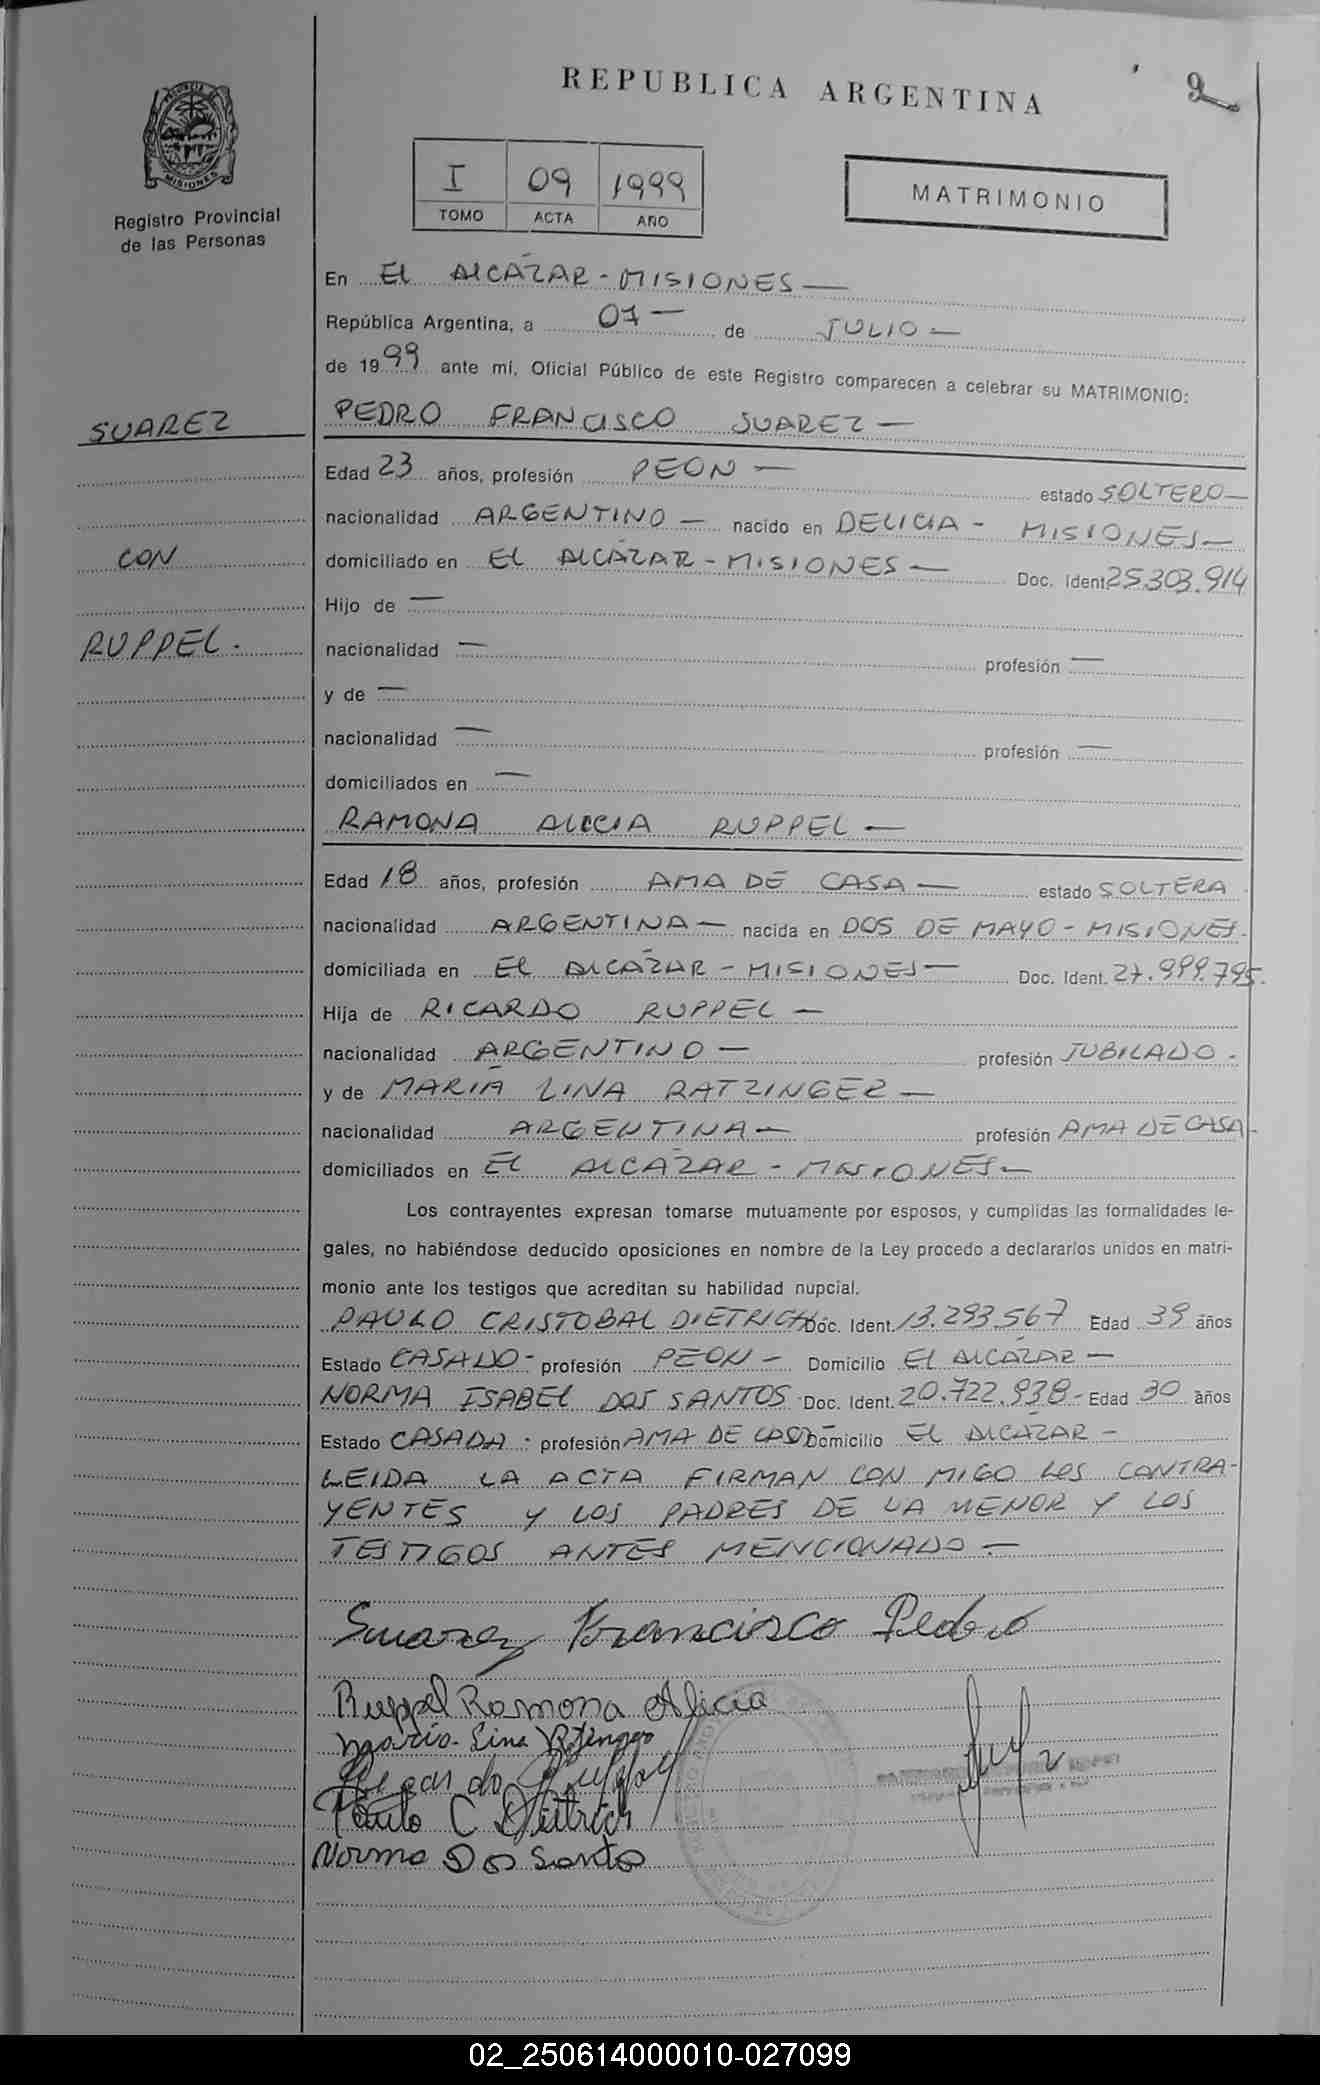 REPUBLICA ARGENTINA
9
PROVINCIA DE
MISIONES
Registro Provincial
de las Personas
I 09 1999
TOMO ACTA AÑO
MATRIMONIO
En EL ALCÁZAR - MISIONES —
República Argentina, a 01 — de JULIO —
de 1999 ante mi, Oficial Público de este Registro comparecen a celebrar su MATRIMONIO:
SUAREZ
PEDRO FRANCISCO SUAREZ —
Edad 23 años, profesión PEON — estado SOLTERO —
nacionalidad ARGENTINO — nacido en DELICIA - MISIONES —
CON
domiciliado en EL ALCÁZAR - MISIONES — Doc. Ident. 25.303.914
Hijo de —
RUPPEL.
nacionalidad — profesión —
y de —
nacionalidad — profesión —
domiciliados en —
RAMONA ALICIA RUPPEL —
Edad 18 años, profesión AMA DE CASA — estado SOLTERA
nacionalidad ARGENTINA — nacida en DOS DE MAYO - MISIONES.
domiciliada en EL ALCÁZAR - MISIONES — Doc. Ident. 27.999.795.
Hija de RICARDO RUPPEL —
nacionalidad ARGENTINO — profesión JUBILADO.
y de MARÍA LINA RATZINGER —
nacionalidad ARGENTINA — profesión AMA DE CASA -
domiciliados en EL ALCÁZAR - MISIONES —
Los contrayentes expresan tomarse mutuamente por esposos, y cumplidas las formalidades le-
gales, no habiéndose deducido oposiciones en nombre de la Ley procedo a declararlos unidos en matri-
monio ante los testigos que acreditan su habilidad nupcial.
PAULO CRISTOBAL DIETRICH Doc. Ident. 13.293.567 Edad 39 años
Estado CASADO - profesión PEON - Domicilio EL ALCÁZAR —
NORMA ISABEL DOS SANTOS Doc. Ident. 20.722.938 - Edad 30 años
Estado CASADA. profesión AMA DE CASA Domicilio EL ALCÁZAR -
LEIDA LA ACTA FIRMAN CON MIGO LOS CONTRA-
YENTES Y LOS PADRES DE LA MENOR Y LOS
TESTIGOS ANTES MENCIONADO —
Suarez Francisco Pedro
Ruppel Ramona Alicia
Maria Lina
Ricardo Ruppel
Paulo C Dietrich
Norma Dos Santos
02_250614000010-027099